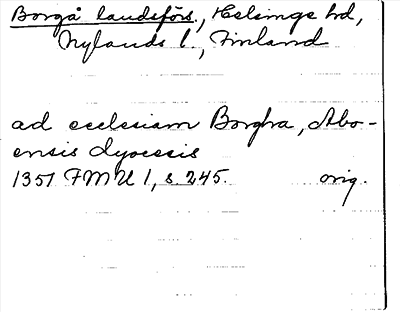 Borgå landsförs., Helsinge hd,
Nylands l., Finland
ad ecclesiam Borgha, Abo-
ensis dyocesis
1351 FMU 1, s. 245. orig.